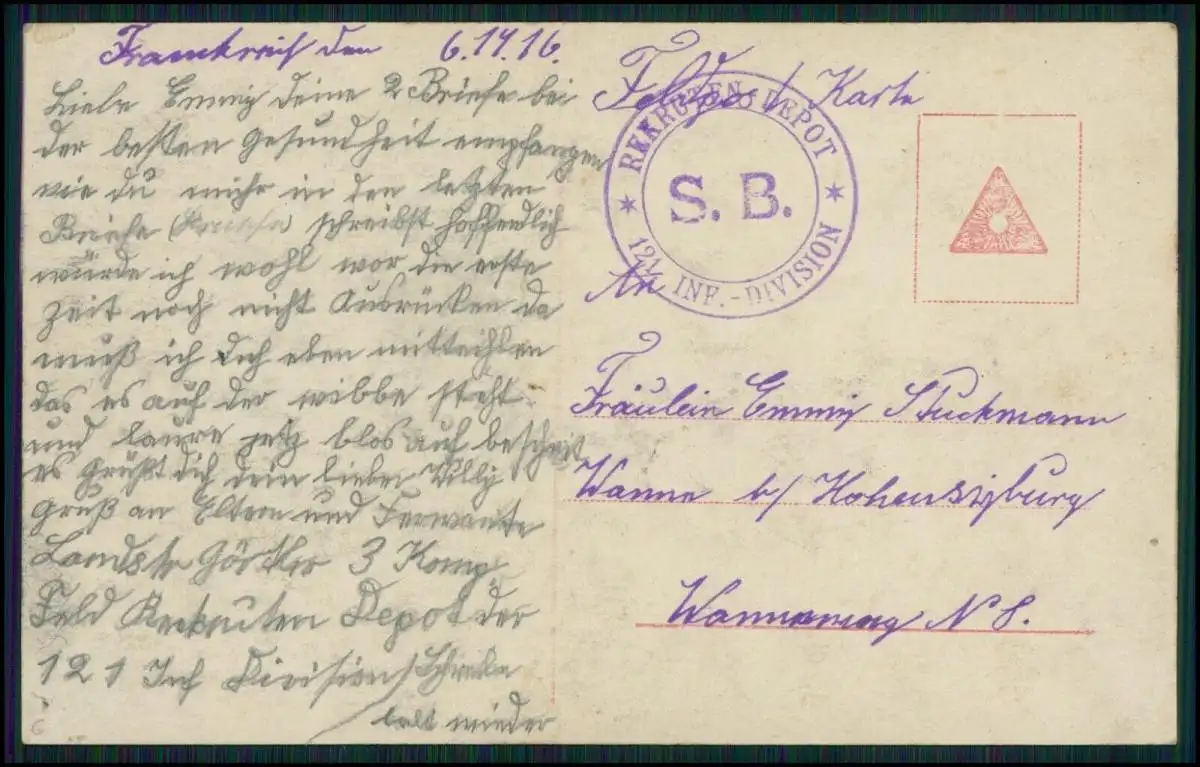 Frankreich den 6.14.16.
Liebe Emmy deine 2 Briefe bei
der besten Gesundheit empfangen
wie du mihr in den letzten
Briefe schreibst hoffendlich
würde ich wohl wor die erste
Zeit noch nicht Ausrücken da
muß ich dich eben mitteihlen
das es auf der wibbe steht
und laure jetz blos auf bescheit
es Grüßt dich dein lieber Willy
Gruß an Eltern und Ferwante
Landstr Görtler 3 Komp
Feld Rekruten Depot der
121 Inf Division / Schreibe
balt wieder
Feldpost / Karte
REKRUTEN-DEPOT
S. B.
121. INF.-DIVISION
An
Fräulein Emmy Stuckmann
Wanne b/ Hohensyburg
N 8.